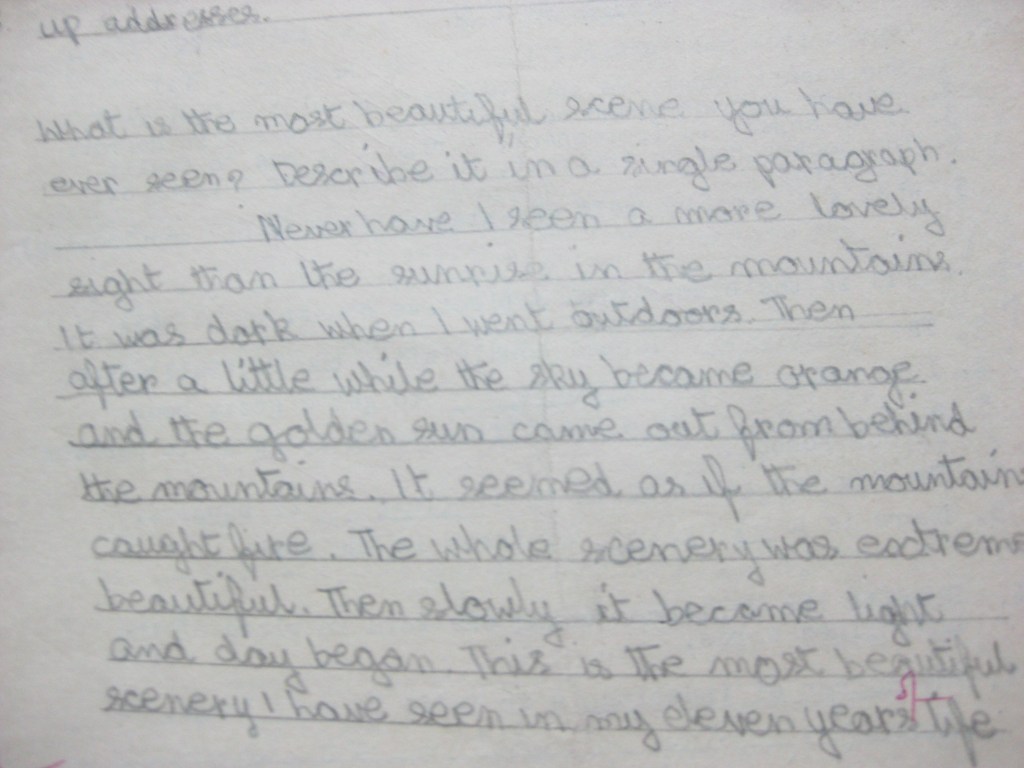 up addresses.
What is the most beautiful scene you have
ever seen? Describe it in a single paragraph.
Never have I seen a more lovely
sight than the sunrise in the mountains.
It was dark when I went outdoors. Then
after a little while the sky became orange
and the golden sun came out from behind
the mountains. It seemed as if the mountain
caught fire. The whole scenery was extrem
beautiful. Then slowly it became light
and day began. This is the most beautiful
scenery I have seen in my eleven years life